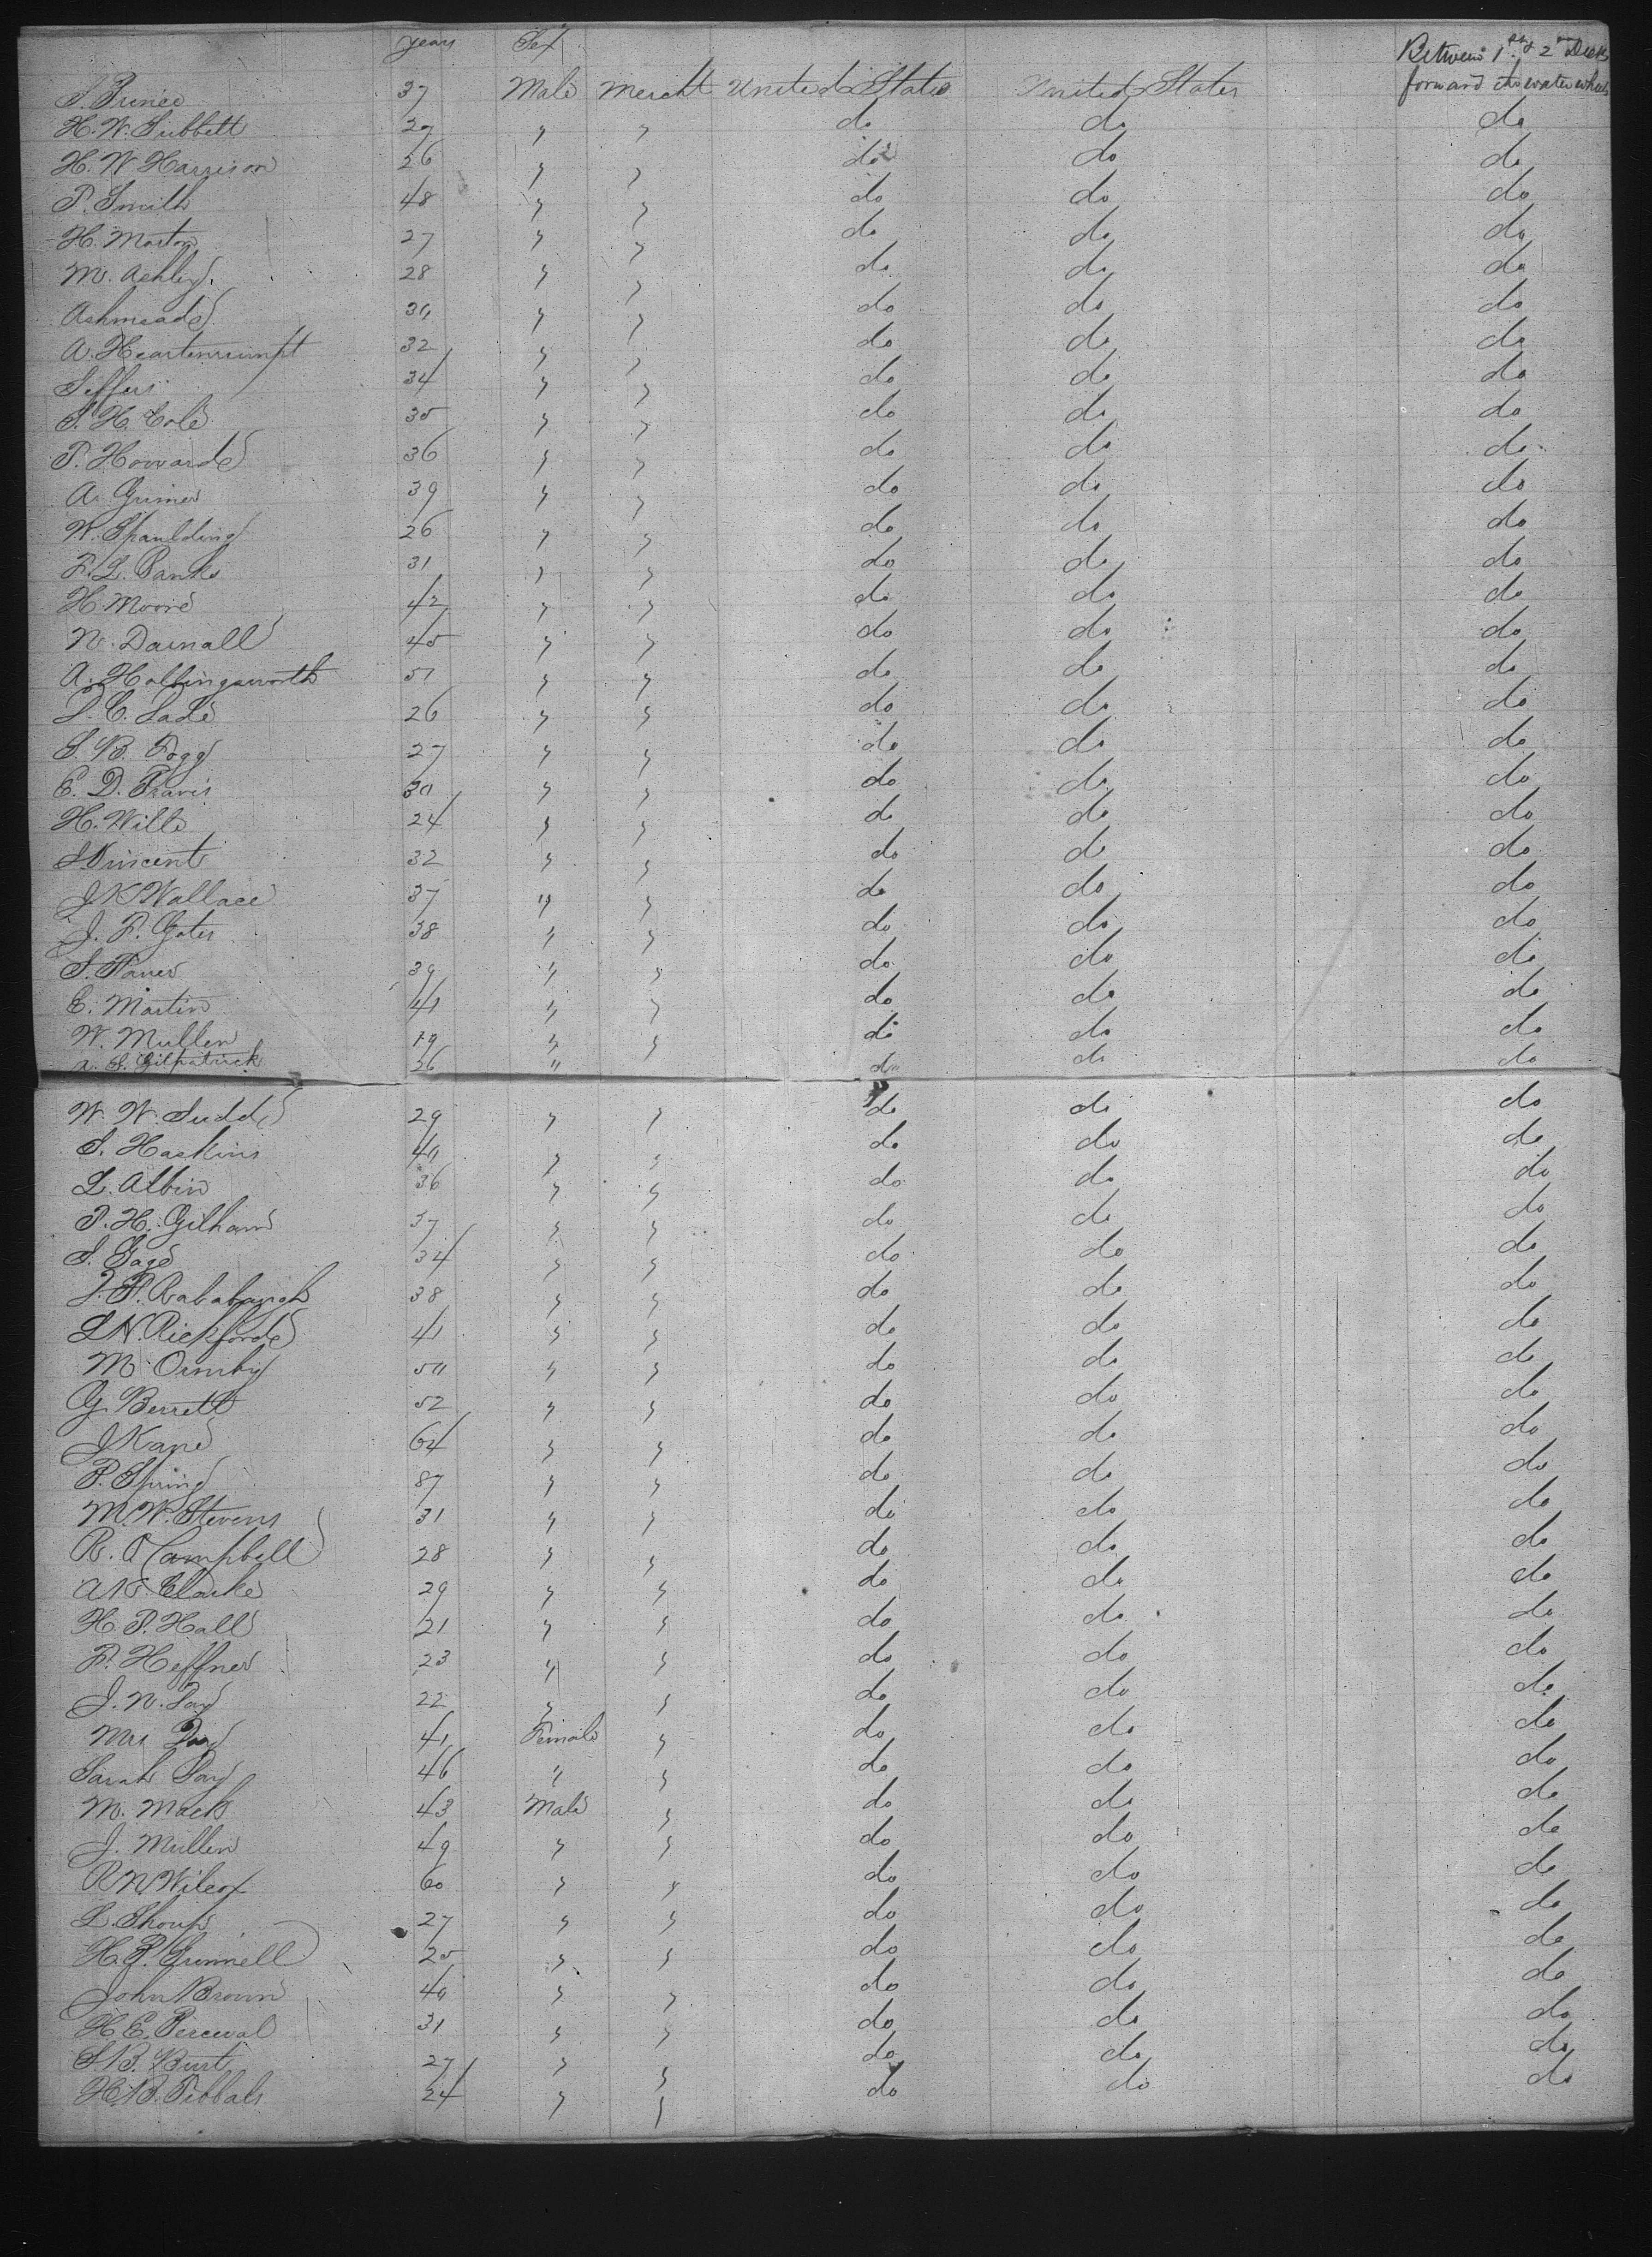 years Sex Between 1st & 2nd Decks
S. Prince 37 Male Mercht United States United States forward the water wheels
H. W. Tibbett 29 " " do do do
H. W. Harrison 26 " " do do do
P. Smith 48 " " do do do
H. Morton 27 " " do do do
M. Ashley. 28 " " do do do
Ashmeade 30 " " do do do
A. 32 " " do do do
Jeffers 34 " " do do do
S. H. Cole 35 " " do do do
P. Howard 36 " " do do do
A. Grimes 39 " " do do do
W. Spaulding 26 " " do do do
F. L. Banks 31 " " do do do
H. Moore 42 " " do do do
N. Darnall 45 " " do do do
A. Hollingsworth 51 " " do do do
S. C. 26 " " do do do
S. B. Fogg 27 " " do do do
E. D. Travis 30 " " do do do
H. Wills 24 " " do do do
S Vincent 32 " " do do do
J K Wallace 37 " " do do do
J. F. Gates 38 " " do do do
S. 39 " " do do do
C. Martin 41 " " do do do
W. Mullen 19 " " do do do
A. S. Gilpatrick 26 " do do do
W. W. Judd 29 " " do do do
S. Haskins 40 " " do do do
L. Albin 36 " " do do do
P. H. Gilham 37 " " do do do
S. Gage 34 " " do do do
J. F. 38 " " do do do
S N Rickford 41 " " do do do
M. Ormby 50 " " do do do
G. Berrett 52 " " do do do
J Kane 64 " " do do do
P. Spring 87 " " do do do
M. W. Stevens 31 " " do do do
R. A Campbell 28 " " do do do
A. F. Clarke 29 " " do do do
H. P. Hall 21 " " do do do
F. Heffner 23 " " do do do
J. N. Day 22 " " do do do
Mrs Day 41 Female " do do do
Sarah Day 46 " " do do do
M. Mack 43 Male " do do do
J. Mullen 49 " " do do do
R N Wilcox 60 " " do do do
L. Shoup 27 " " do do do
H. P. Grinnell 25 " " do do do
John Brown 40 " " do do do
H. E. Perceval 31 " " do do do
S. B. Burt 27 " " do do do
H. B. Tibbals 24 " " do do do